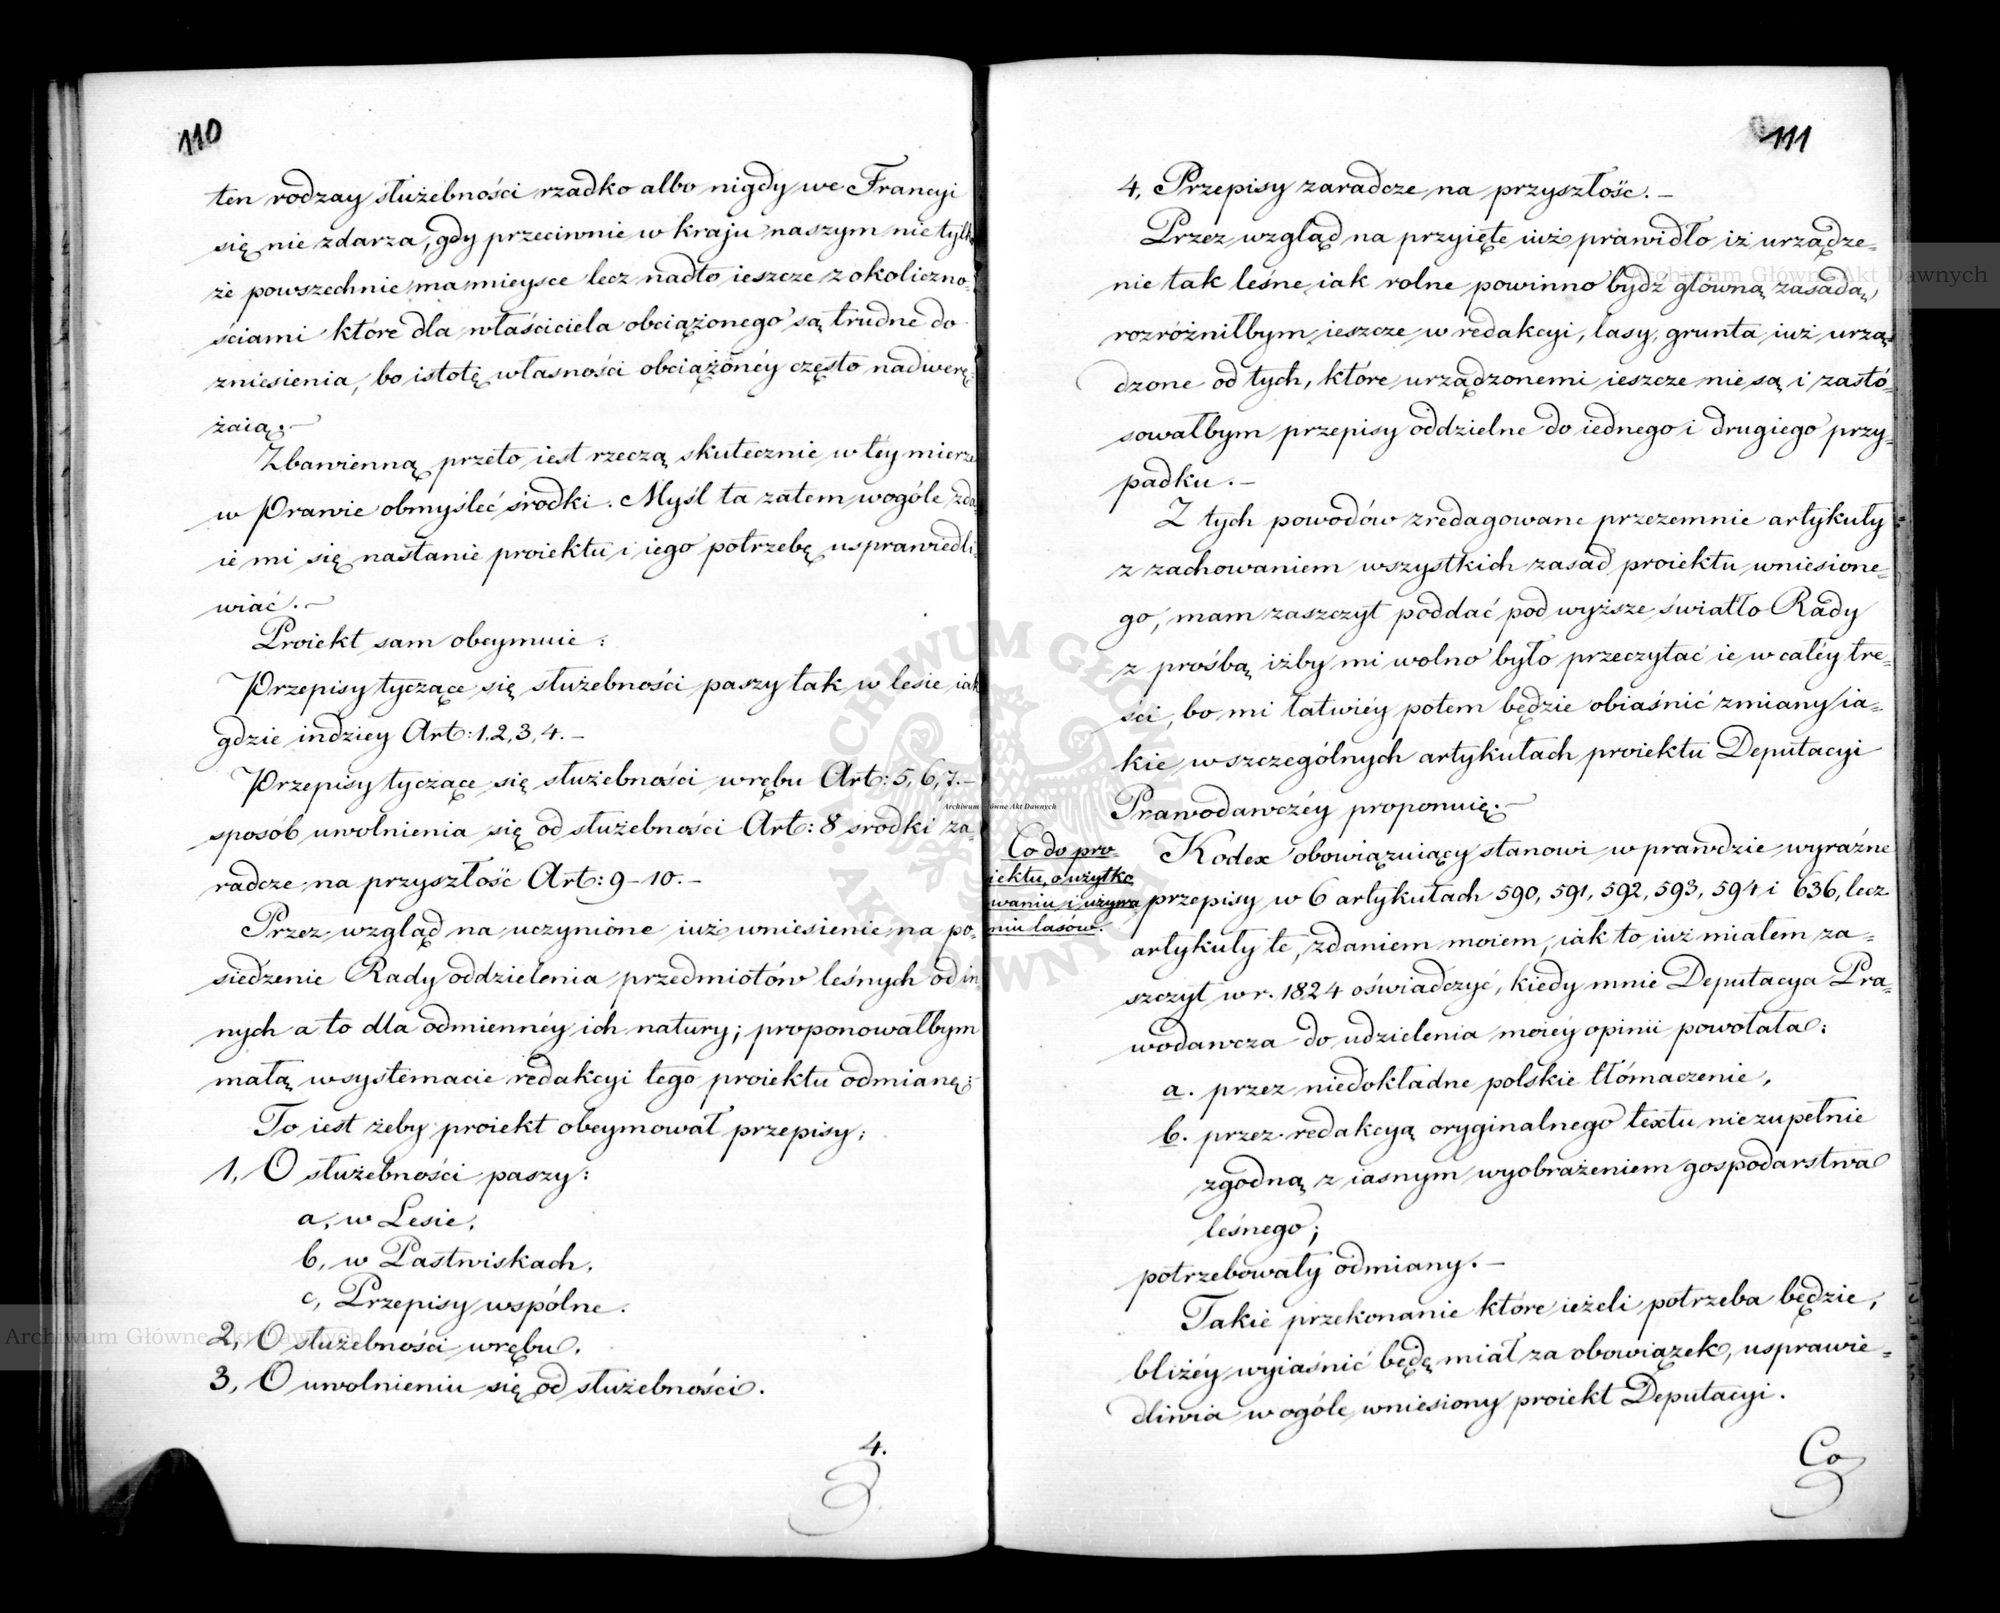 110
ten rodzay służebności rzadko albo nigdy we Francyi
się nie zdarza, gdy przeciwnie w kraju naszym nie tylko
że powszechnie ma mieysce lecz nadto ieszcze z okoliczno-
ściami które dla właściciela obciążonego są trudne do
zniesienia, bo istotę własności obciążonéy często nadwerę-
żaią.—
Zbawienną przeto iest rzeczą skutecznie w tey mierze
w Prawie obmyśleć środki. Myśl ta zatem wogóle zda-
ie mi się nastanie proiektu i iego potrzebę usprawiedli-
wiać.—
Proiekt sam obeymuie:
Przepisy tyczące się służebności paszy tak w lesie iak
gdzie indziey Art: 1, 2, 3, 4.—
Przepisy tyczące się służebności wrębu Art: 5, 6, 7.—
sposób uwolnienia się od służebności Art: 8 srodki za-
radcze na przyszłość Art: 9-10.—
Przez wzgląd na uczynione iuż wniesienie na po-
siedzenie Rady oddzielenia przedmiotów leśnych od in
nych a to dla odmiennéy ich natury; proponowałbym
małą w systemacie redakcyi tego proiektu odmianę;
To iest żeby proiekt obeymował przepisy;
1, O służebności paszy:
a, w Lesie,
b, w Pastwiskach,
c, Przepisy wspólne.
2, O służebności wrębu,
3, O uwolnieniu się od służebności.
4.
111
4, Przepisy zaradcze na przyszłość.—
Przez wzgląd na przyięte iuż prawidło iż urządze-
nie tak leśne iak rolne powinno bydź główną zasadą,
rozróżniłbym ieszcze w redakcyi, lasy, grunta iuż urzą-
dzone od tych, które urządzonemi ieszcze nie są i zastó-
sowałbym przepisy oddzielne do iednego i drugiego przy-
padku.—
Z tych powodów zredagowane przezemnie artykuły
z zachowaniem wszystkich zasad proiektu wniesione-
go, mam zaszczyt poddać pod wyższe światło Rady
z prośbą iżby mi wolno było przeczytać ie w całéy tre-
ści, bo mi łatwiéy potem będzie obiaśnić zmiany ia-
kie w szczególnych artykułach proiektu Deputacyi
Prawodawczéy proponuię.—
Co do pro-
iektu, o użytko
waniu i używa
niu lasów.
Kodex obowiązuiący stanowi w prawdzie wyraźne
przepisy w 6 artykułach 590, 591, 592, 593, 594 i 636, lecz
artykuły te, zdaniem moiem, iak to iuż miałem za-
szczyt w r. 1824 oświadczyć, kiedy mnie Deputacya Pra-
wodawcza do udzielenia moiéy opinii powołała:
a. przez niedokładne polskie tłómaczenie,
b. przez redakcyą oryginalnego textu nie zupełnie
zgodną z iasnym wyobrażeniem gospodarstwa
leśnego;
potrzebowały odmiany.—
Takie przekonanie które ieżeli potrzeba będzie,
bliżéy wyiaśnić będę miał za obowiązek, usprawie-
dliwia w ogóle wniesiony proiekt Deputacyi.
Co
Archiwum Główne Akt Dawnych
Archiwum Główne Akt Dawnych
Archiwum Główne Akt Dawnych
ARCHIWUM GŁÓWNE AKT DAWNYCH